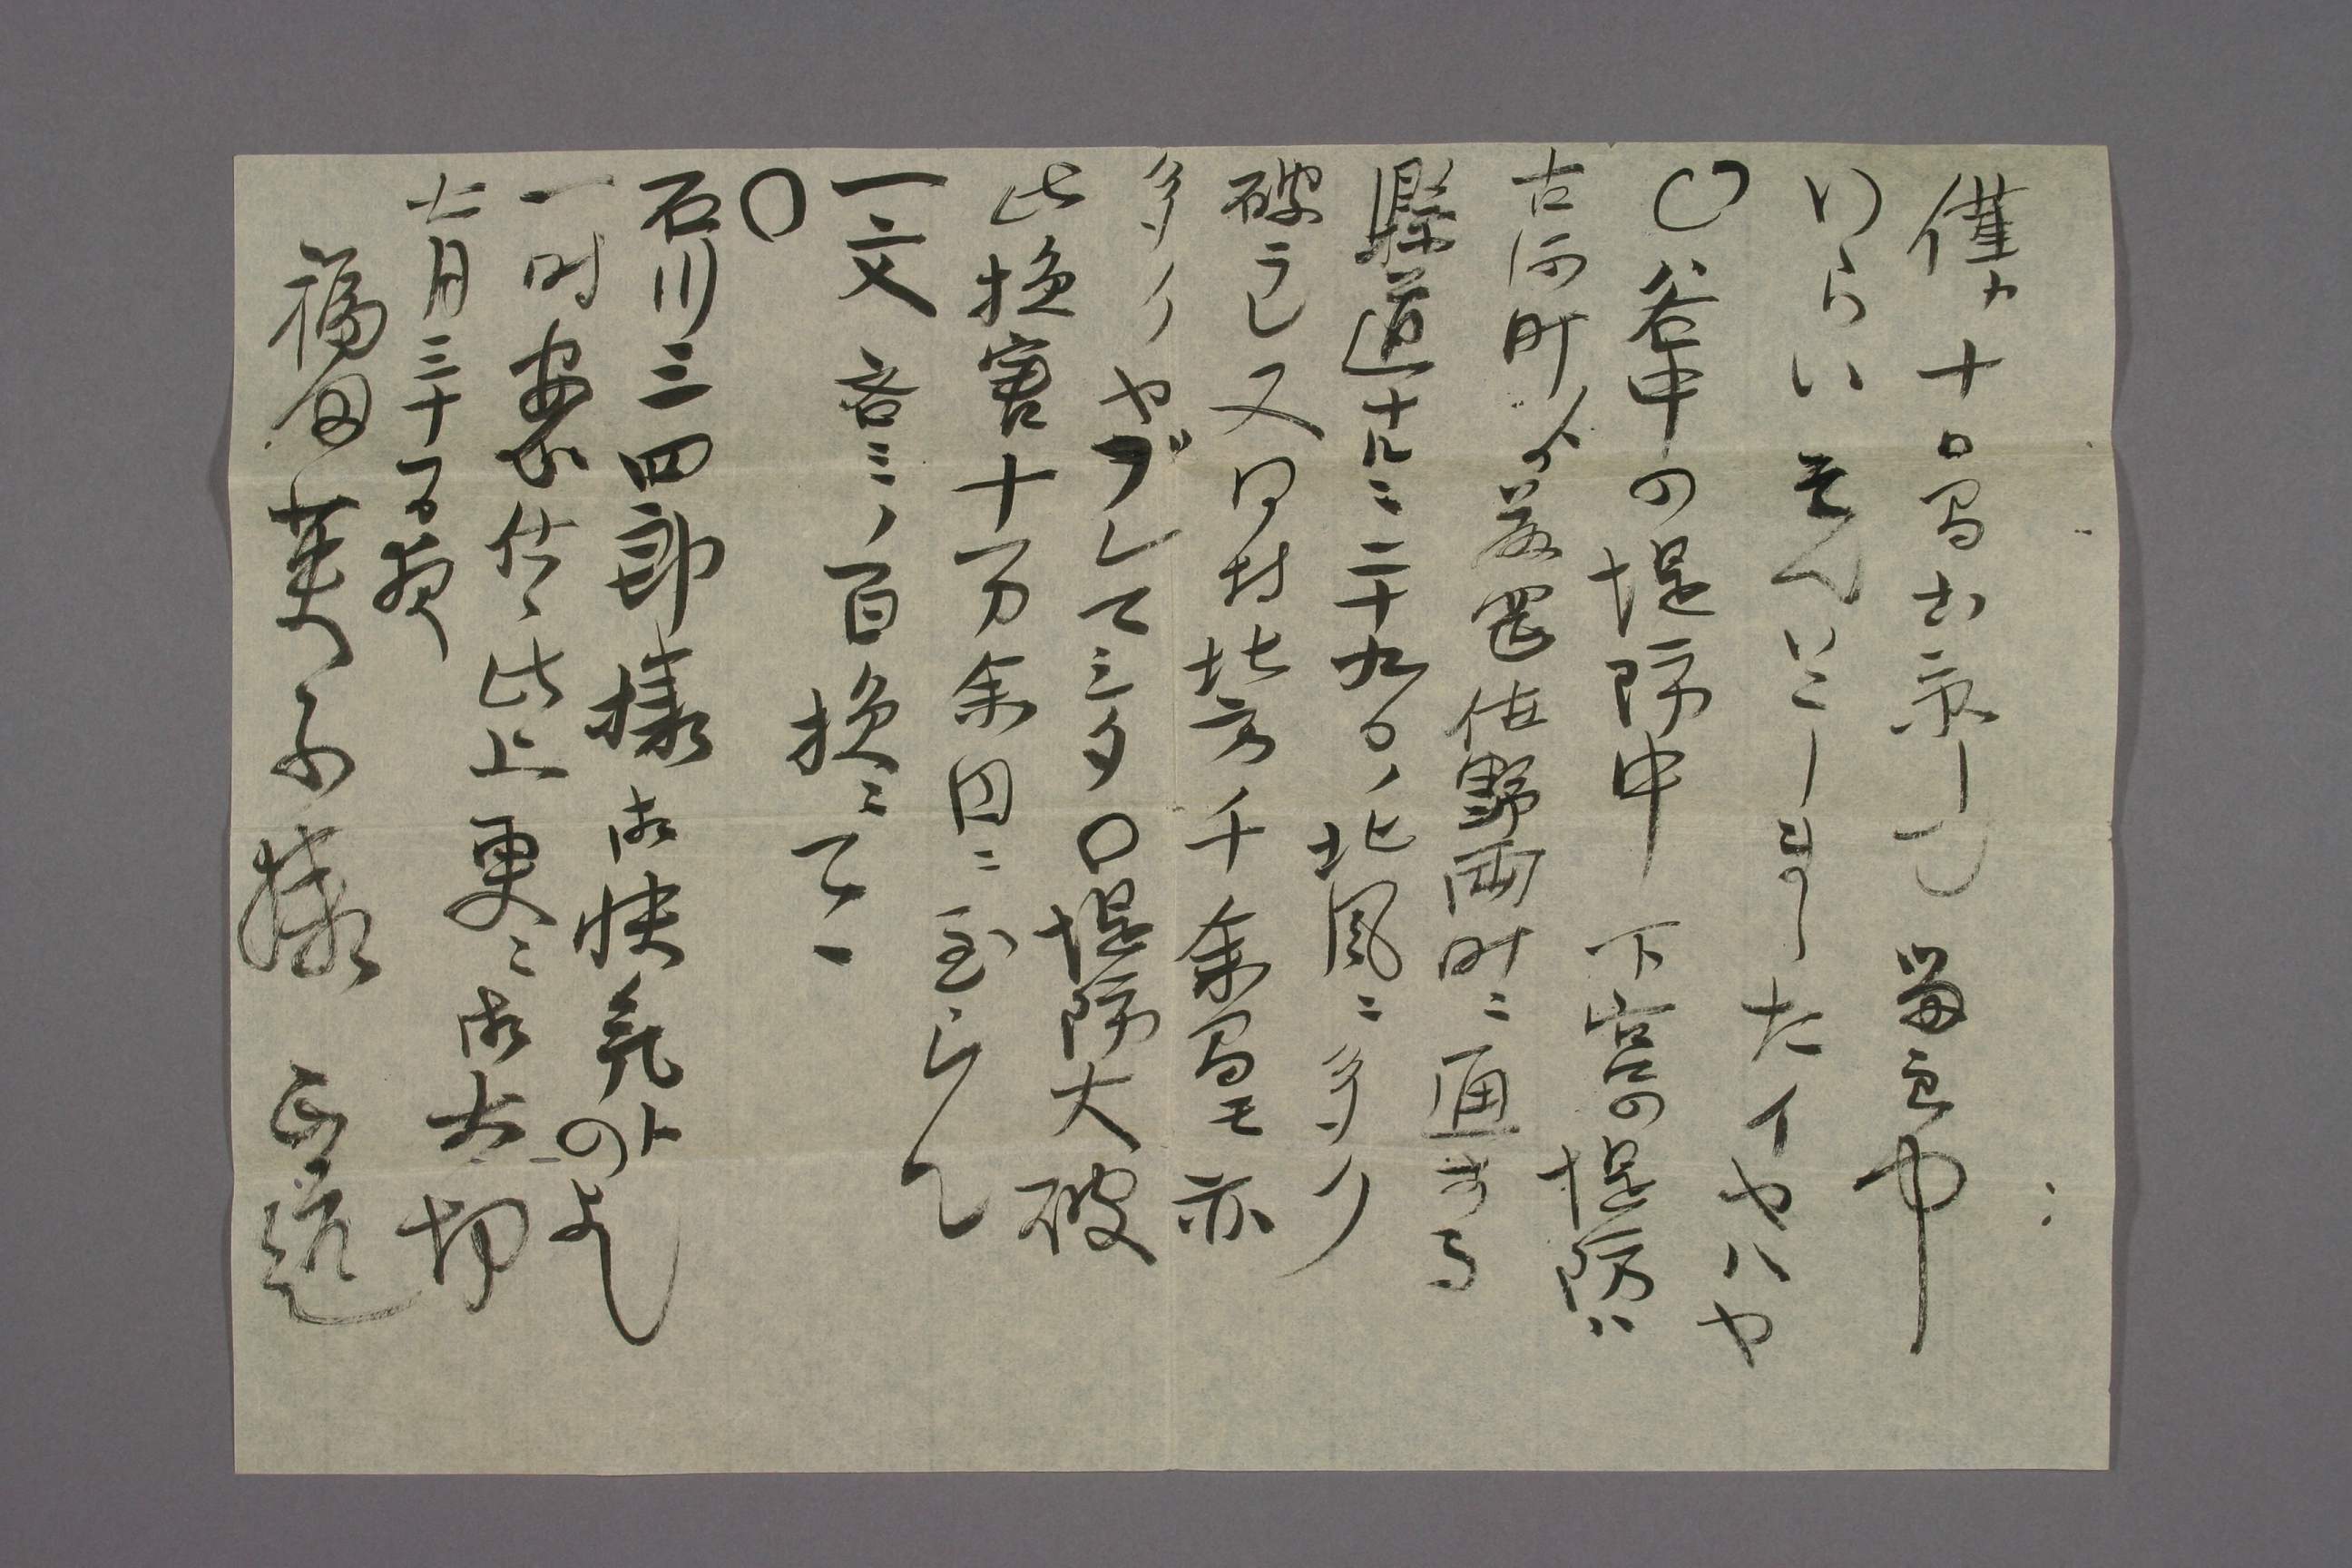 僅カ十日間出京して留主中
いろいそんいたしましたイヤハヤ
○谷中の堤防中 下宮の堤防ハ
古河町より藤岡佐野両町ニ通する
縣道ナルニ二十九日ノ北風ニ多ク
破ラレ又同村北方千余間モ亦
多クヤブレて三ケ口堤防大破
此損害十万余円ニ至らん
一文吝ミノ百損ニて
○
石川三四郎様御快気トのよし
一时安心仕候此上更ニ御大切
七月三十一日夜
福田英子様 正造